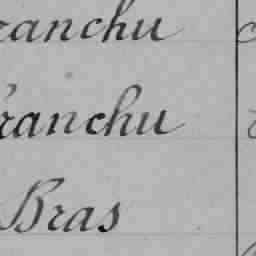 ranchu
ranchu
Bras